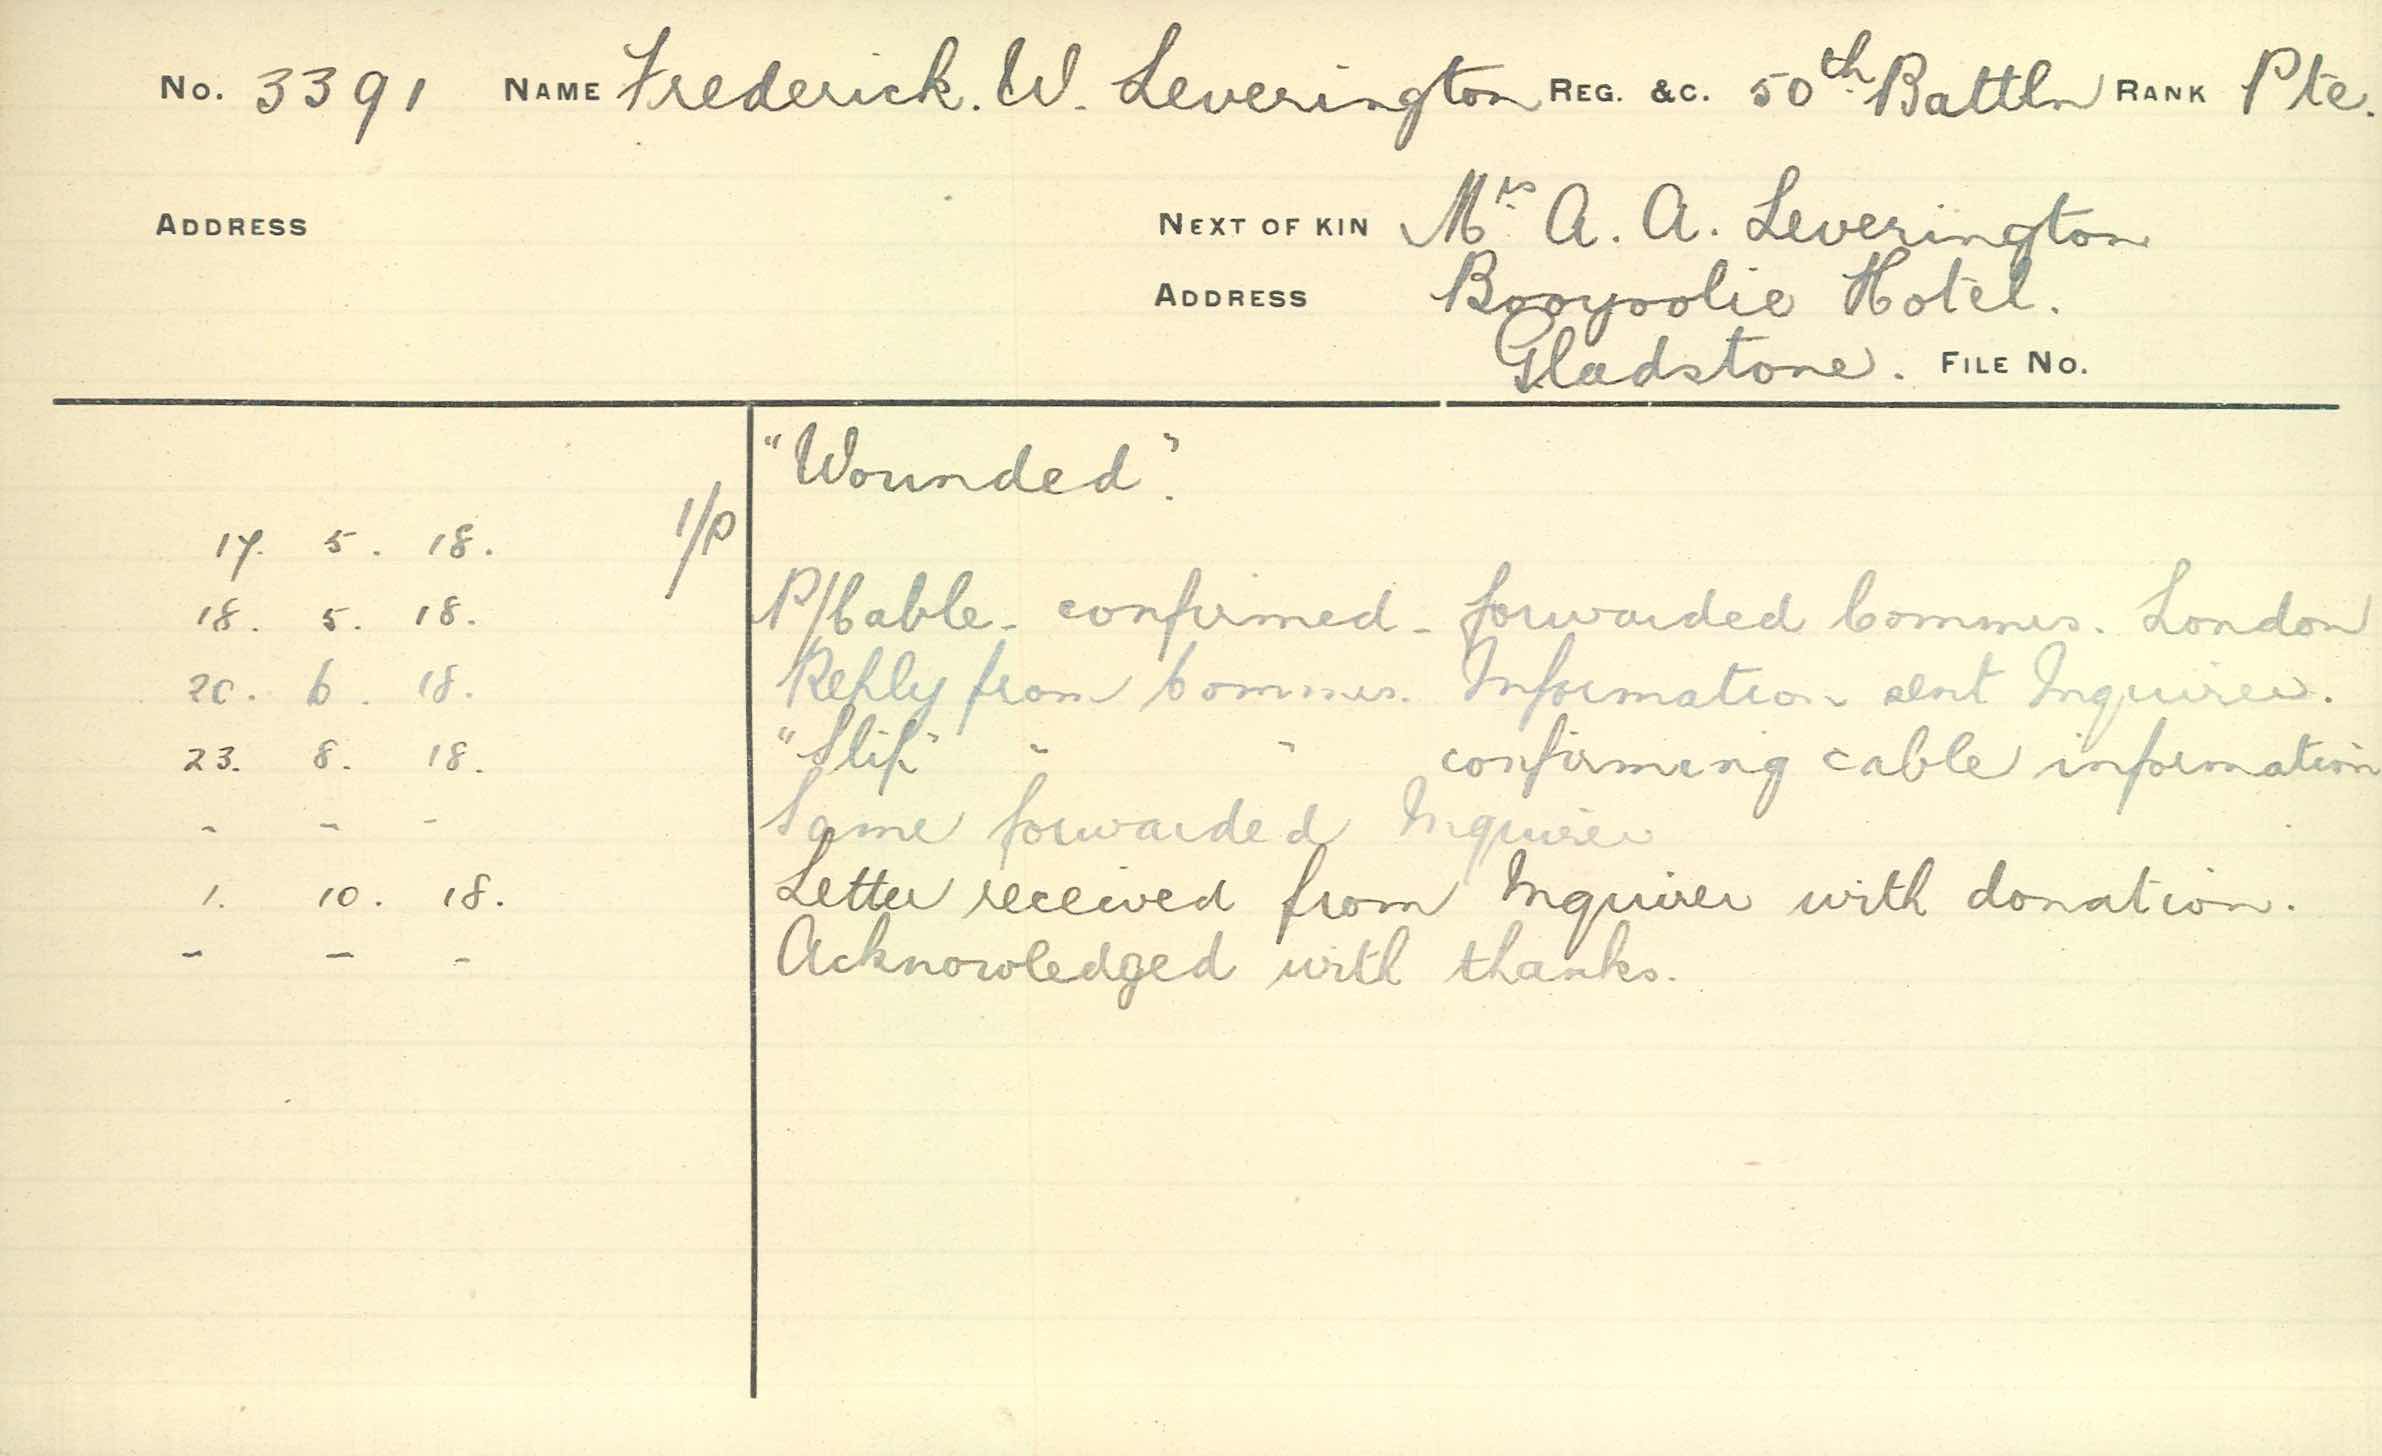 No. 3391 NAME Frederick. W. Leverington REG. &C. 50th Battln RANK Pte.
ADDRESS NEXT OF KIN Mrs A. A. Leverington
ADDRESS Booyoolie Hotel.
Gladstone. FILE No.
"Wounded".
17. 5. 18. 1/P
18. 5. 18. P/Cable - confirmed - forwarded Commrs. London
20. 6. 18. Reply from Commrs. Information sent Inquirer.
23. 8. 18. "Slip" " " confirming cable information
" " " Same forwarded Inquirer
1. 10. 18. Letter received from Inquirer with donation.
" " " Acknowledged with thanks.